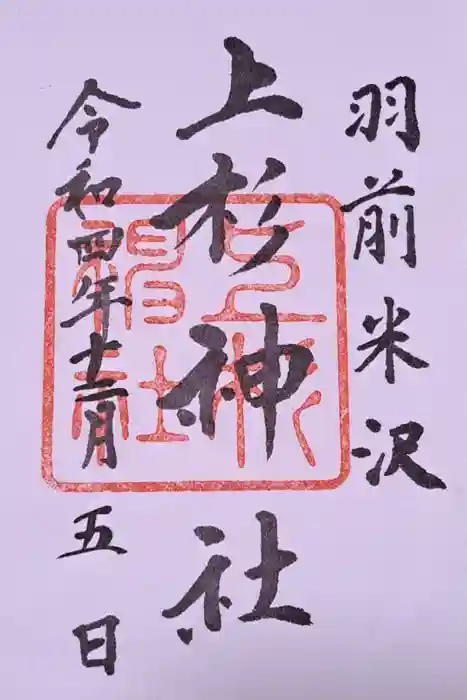 羽前米沢
上杉神社
令和四年十二月五日